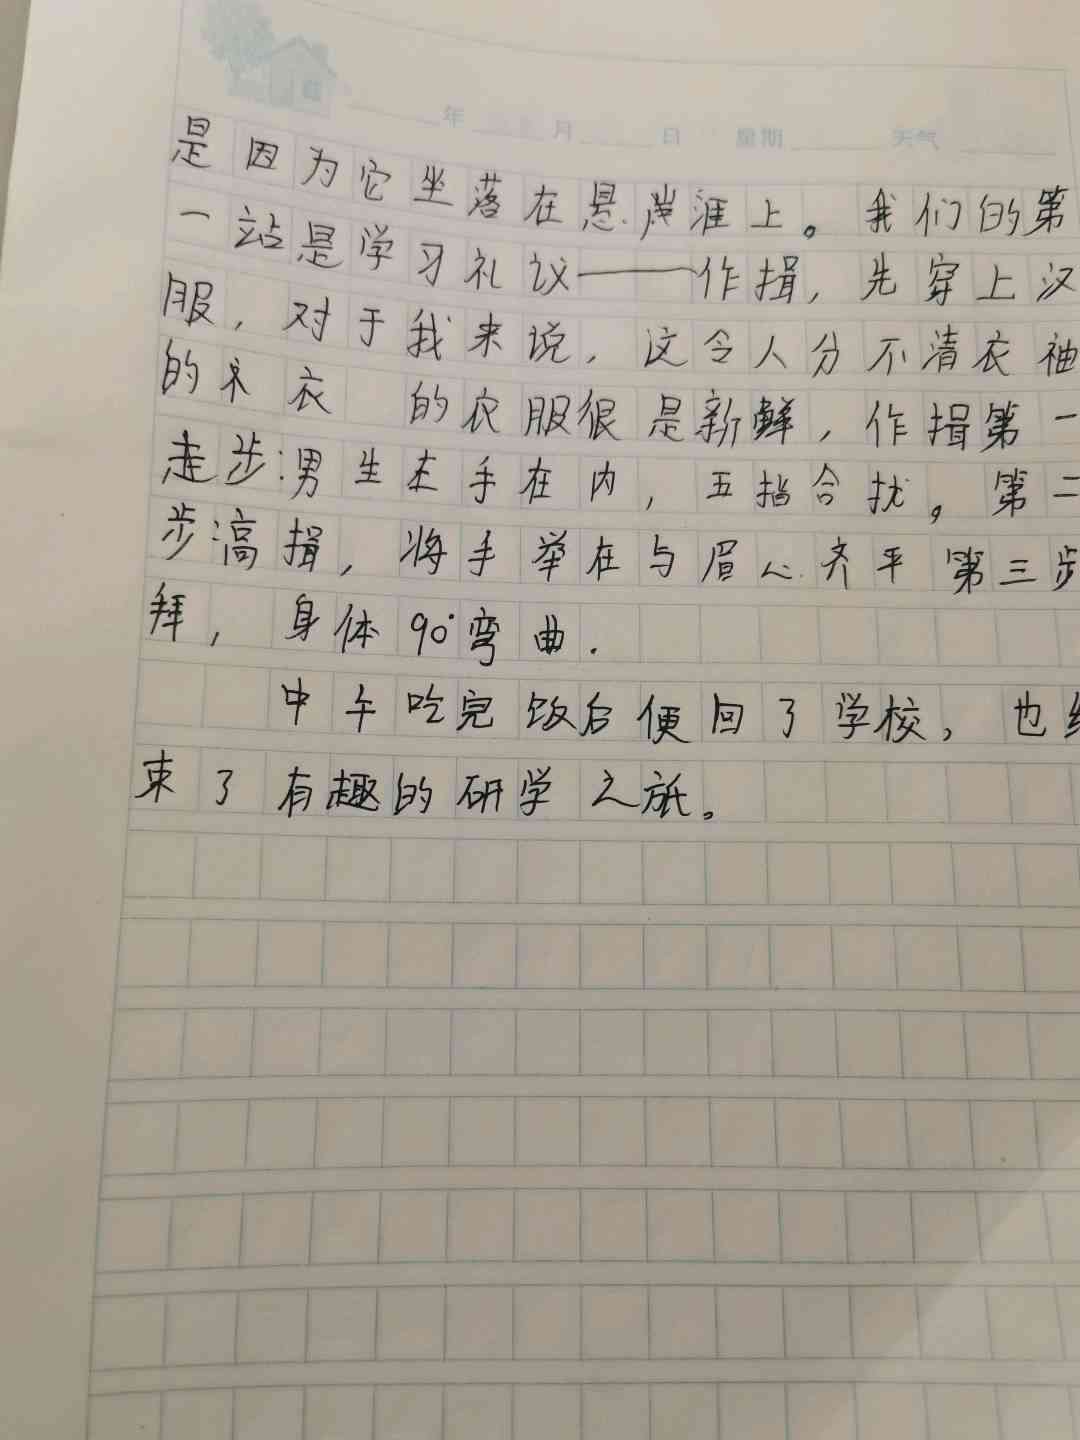 年 月 日 星期 天气
是因为它坐落在悬崖涯上。我们的第
一站是学习礼议——作揖，先穿上汉
服，对于我来说，这令人分不清衣袖
的 衣 的衣服很是新鲜，作揖第一
走步:男生左手在内，五指合扰。第二
步:高揖，将手举在与眉心齐平第三步
拜，身体90°弯曲.
中午吃完饭后便回了学校，也结
束了有趣的研学之旅。